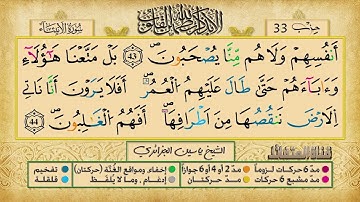 حزب 33
ألا بذكر الله تطمئن القلوب
سُورَةُ الأَنبِيَاء
أَنفُسِهِمْ وَلَاهُم مِّنَّا يُصْحَبُونَ 43 بَلْ مَتَّعْنَا هَٰؤُلَآءِ
وَءَابَآءَهُمْ حَتَّىٰ طَالَ عَلَيْهِمُ الْعُمُرُ أَفَلَا يَرَوْنَ أَنَّا نَاتِي
اِلَارْضَ نَنقُصُهَا مِنَ اَطْرَافِهَا أَفَهُمُ الْغَٰلِبُونَ 44
الشيخ ياسين الجزائري
مدّ 6 حركات لزوماً مدّ 2 أو 4 أو 6 جوازاً إخفاء ومواقع الغُنَّة (حركتان) تفخيم
مدّ مشبع 6 حركات مدّ حركتان إدغام، وما لا يُلفظ قلقلة